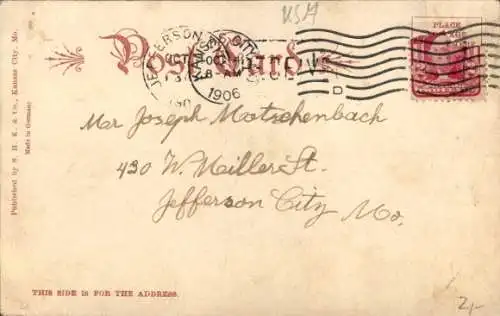 USA
Post Card
PLACE
JEFFERSON
KANSAS CITY
OCT
8
1906
D
Mr Joseph Motschenbach
430 W. Miller St.
Jefferson City Mo.
THIS SIDE IS FOR THE ADDRESS.
2,-
Published by S. H. K. & Co., Kansas City, Mo.
Made in Germany